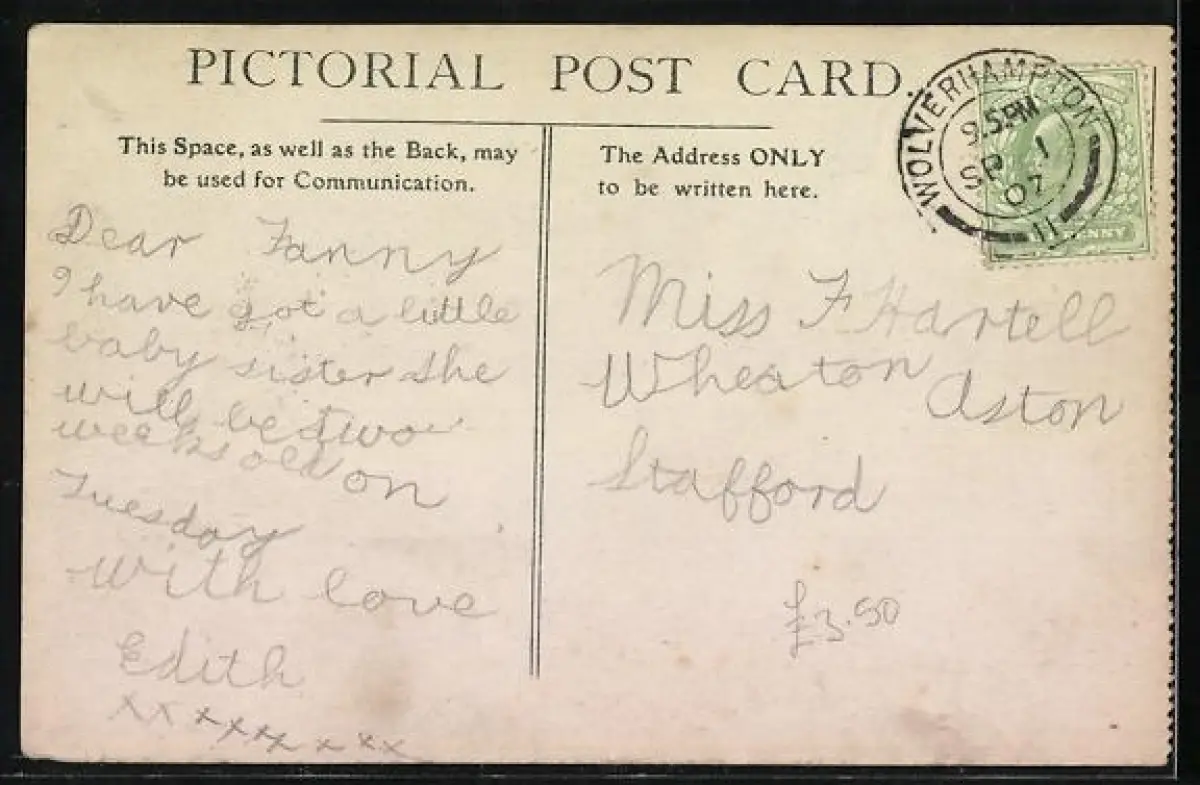 PICTORIAL POST CARD.
This Space, as well as the Back, may
be used for Communication.
Dear Fanny
I have got a little
baby sister she
will be two
weeks old on
Tuesday
with love
Edith
xx xxxx x xx
The Address ONLY
to be written here.
Miss F Hartell
Wheaton Aston
Stafford
£3.50
WOLVERHAMPTON
9.5PM
SP 1
07
11